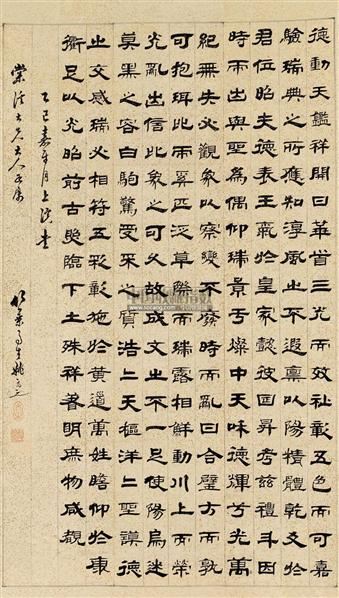 德動天鑑祥開日華首三光而效祉彰五色而可嘉
驗瑞典之所應知淳風止不遐稟以陽精體乾爻於
君位昭夫德表王氣於皇家懿彼日昇考茲禮斗因
時而出與聖為偶仰瑞景兮燦中天咊德輝兮光萬
紀無失必觀象以察變不發時而亂日合璧方而孰
可抱珥比而奚匹泛草際而瑞露相鮮動川上而榮
光亂出信比象之可久故成文止不一足使陽烏迷
莫黑之容白駒驚受采之質浩=天樞洋=聖謨德
止交感瑞必相符五彩彰施於黃道萬姓瞻仰於康
衢足以光昭前古臨下土殊祥著明庶物咸觀
乙巳嘉平月上浣書
大人